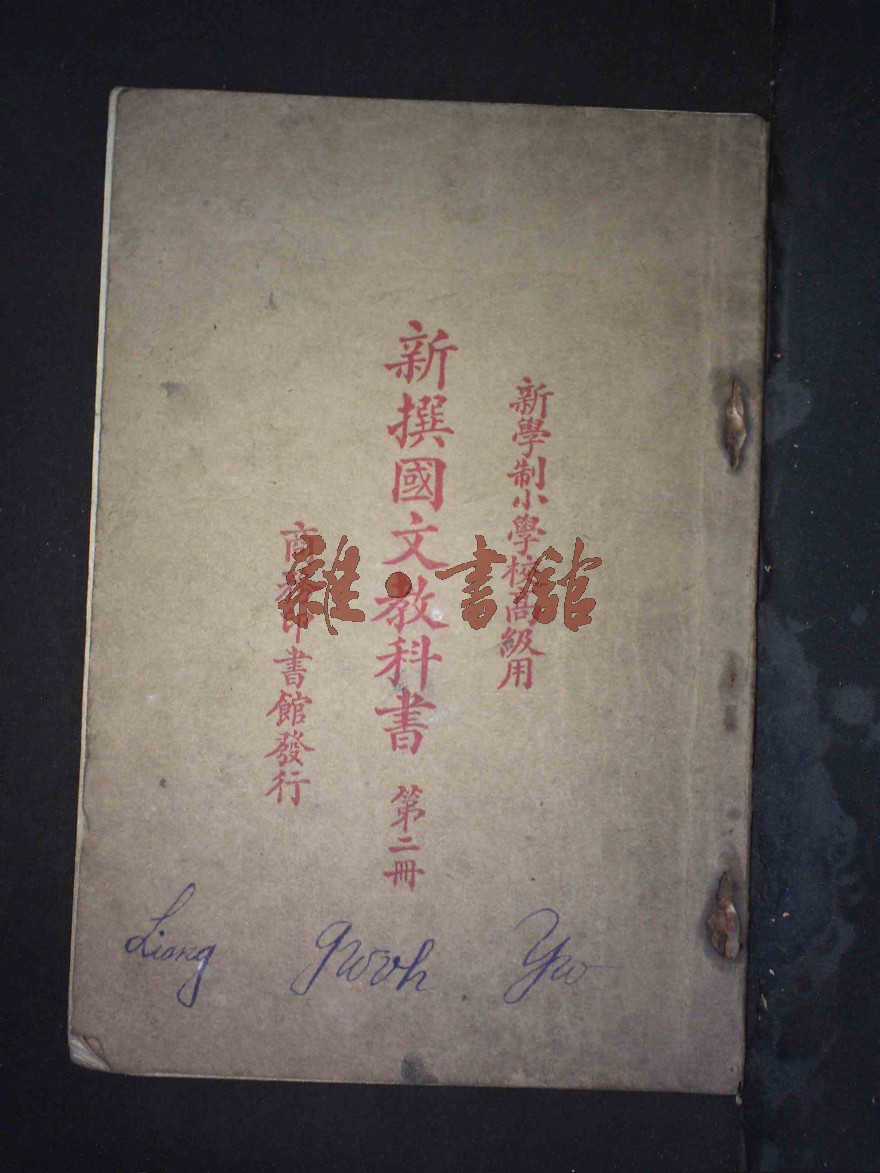 新學制小學校高級用
新撰國文教科書 第二冊
商務印書館發行
雜·書館
Liang Gwoh Yw